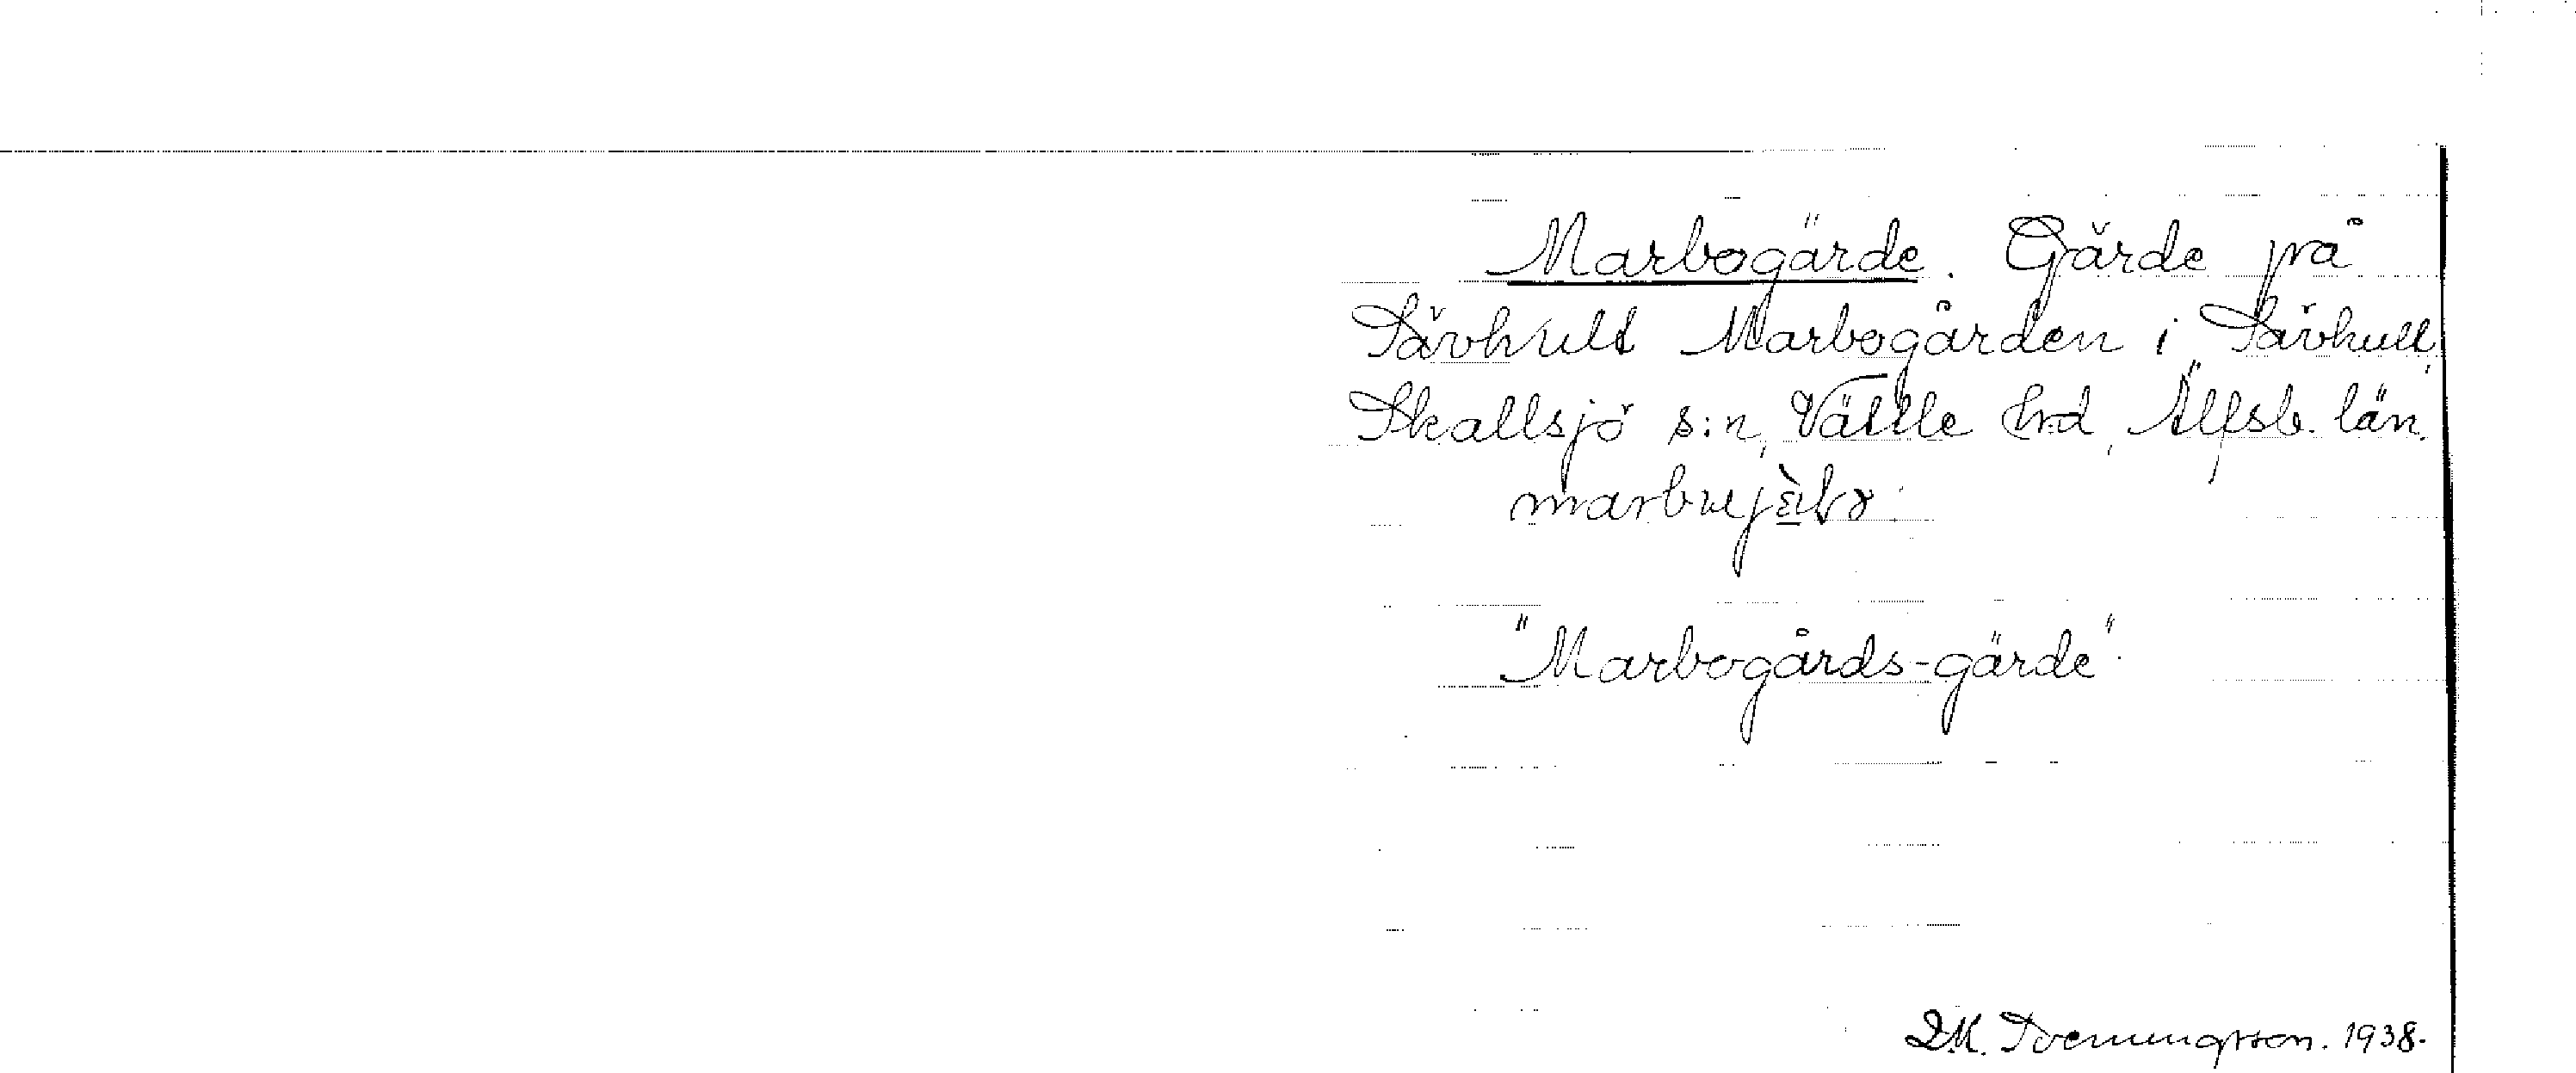 Marbogärde. Gärde på
Sävhult Marbogården i Sävhult,
Skallsjö s:n, Vättle hrd, Älfsb. län.
"Marbogårds-gärde".
1938.